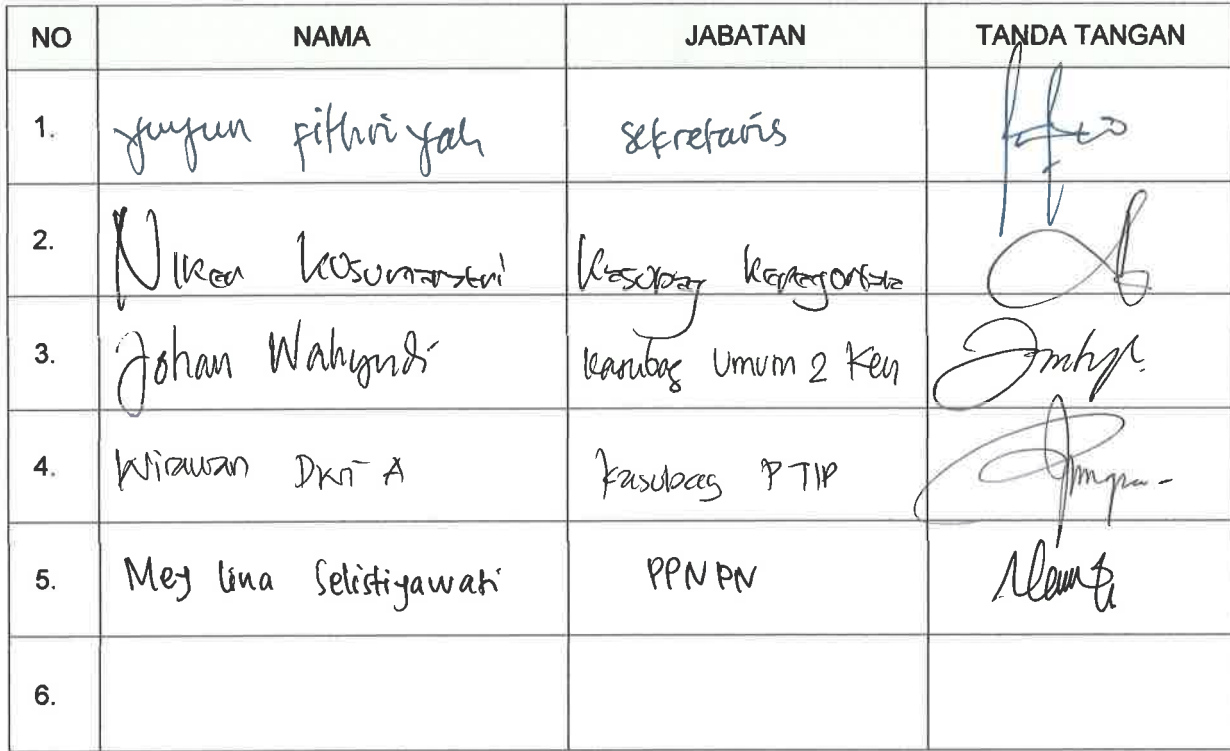 NO NAMA JABATAN TANDA TANGAN
1. yuyun fithriyah sekretaris
2. Niken Kusumastuti Kasubag
3. Johan Wahyudi Kasubag Umum 2 Keu
4. Wirawan Dwi A Kasubag PTIP
5. Mey lina Selistiyawati PPNPN
6.